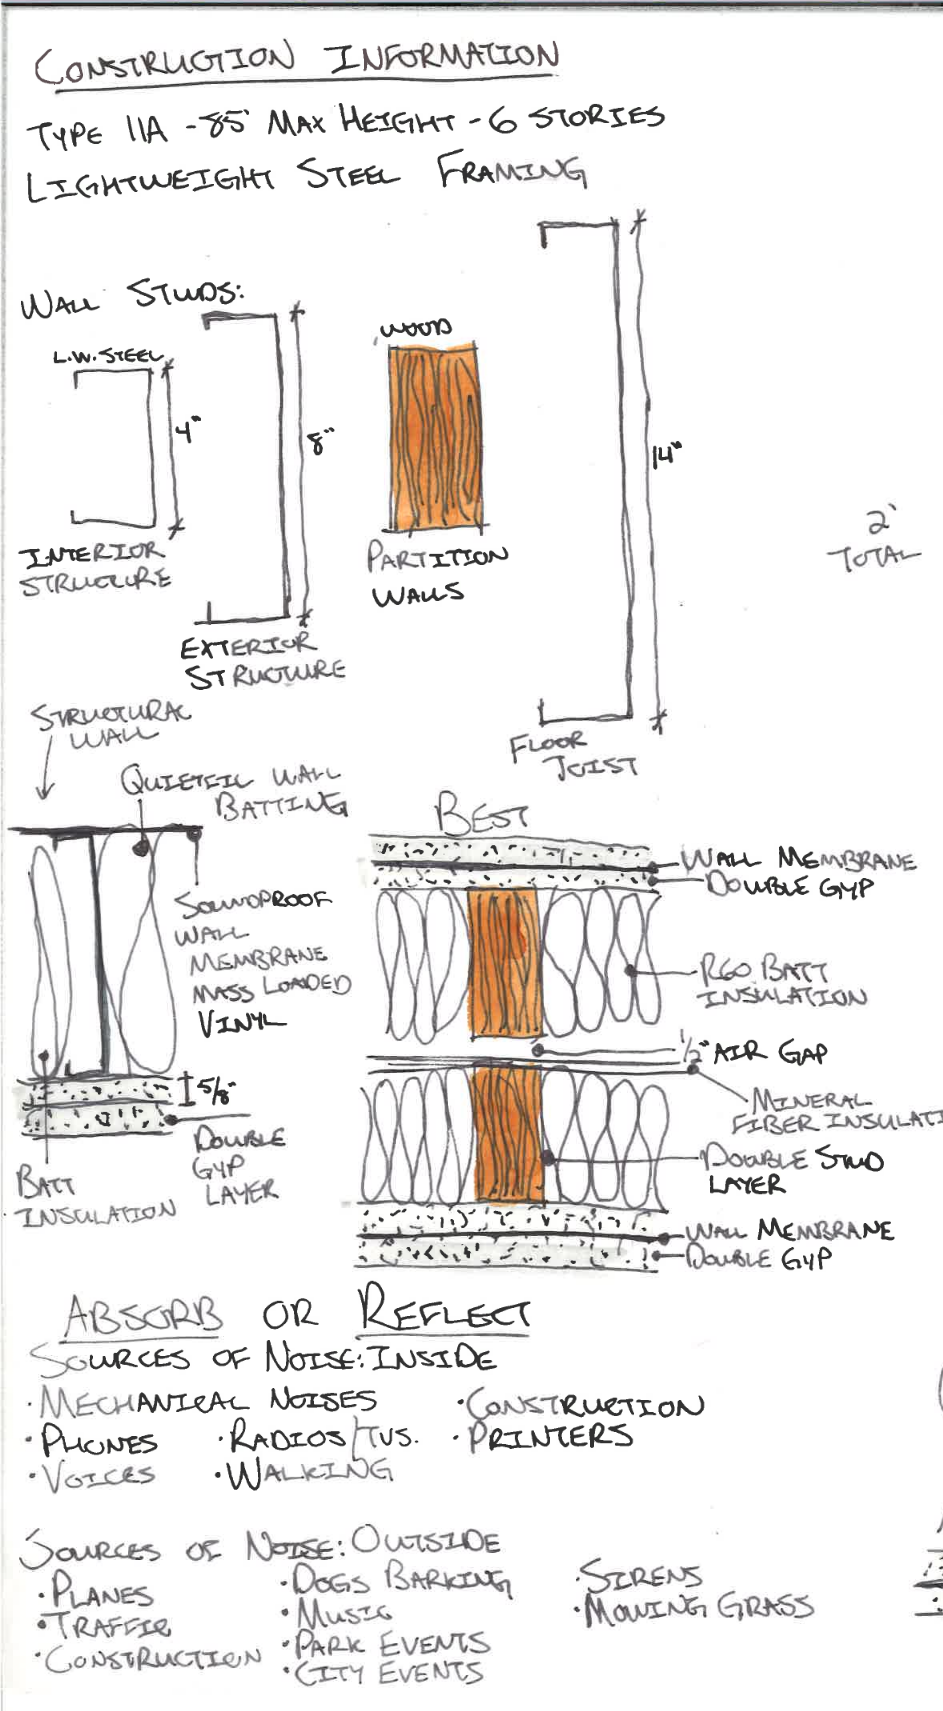 CONSTRUCTION INFORMATION
TYPE IIA - 85' MAX HEIGHT - 6 STORIES
LIGHTWEIGHT STEEL FRAMING
WALL STUDS:
L.W. STEEL
4"
INTERIOR
STRUCTURE
8"
EXTERIOR
STRUCTURE
WOOD
PARTITION
WALLS
14"
FLOOR
JOIST
2'
TOTAL
STRUCTURAL
WALL
QUIETFIL WALL
BATTING
SOUNDPROOF
WALL
MEMBRANE
MASS LOADED
VINYL
5/8"
DOUBLE
GYP
LAYER
BATT
INSULATION
BEST
WALL MEMBRANE
DOUBLE GYP
R60 BATT
INSULATION
1/2" AIR GAP
MINERAL
FIBER INSULATI
DOUBLE STUD
LAYER
WALL MEMBRANE
DOUBLE GYP
ABSORB OR REFLECT
SOURCES OF NOISE: INSIDE
· MECHANICAL NOISES · CONSTRUCTION
· PHONES · RADIOS/TVS. · PRINTERS
· VOICES · WALKING
SOURCES OF NOISE: OUTSIDE
· PLANES · DOGS BARKING · SIRENS
· TRAFFIC · MUSIC · MOWING GRASS
· CONSTRUCTION · PARK EVENTS
· CITY EVENTS